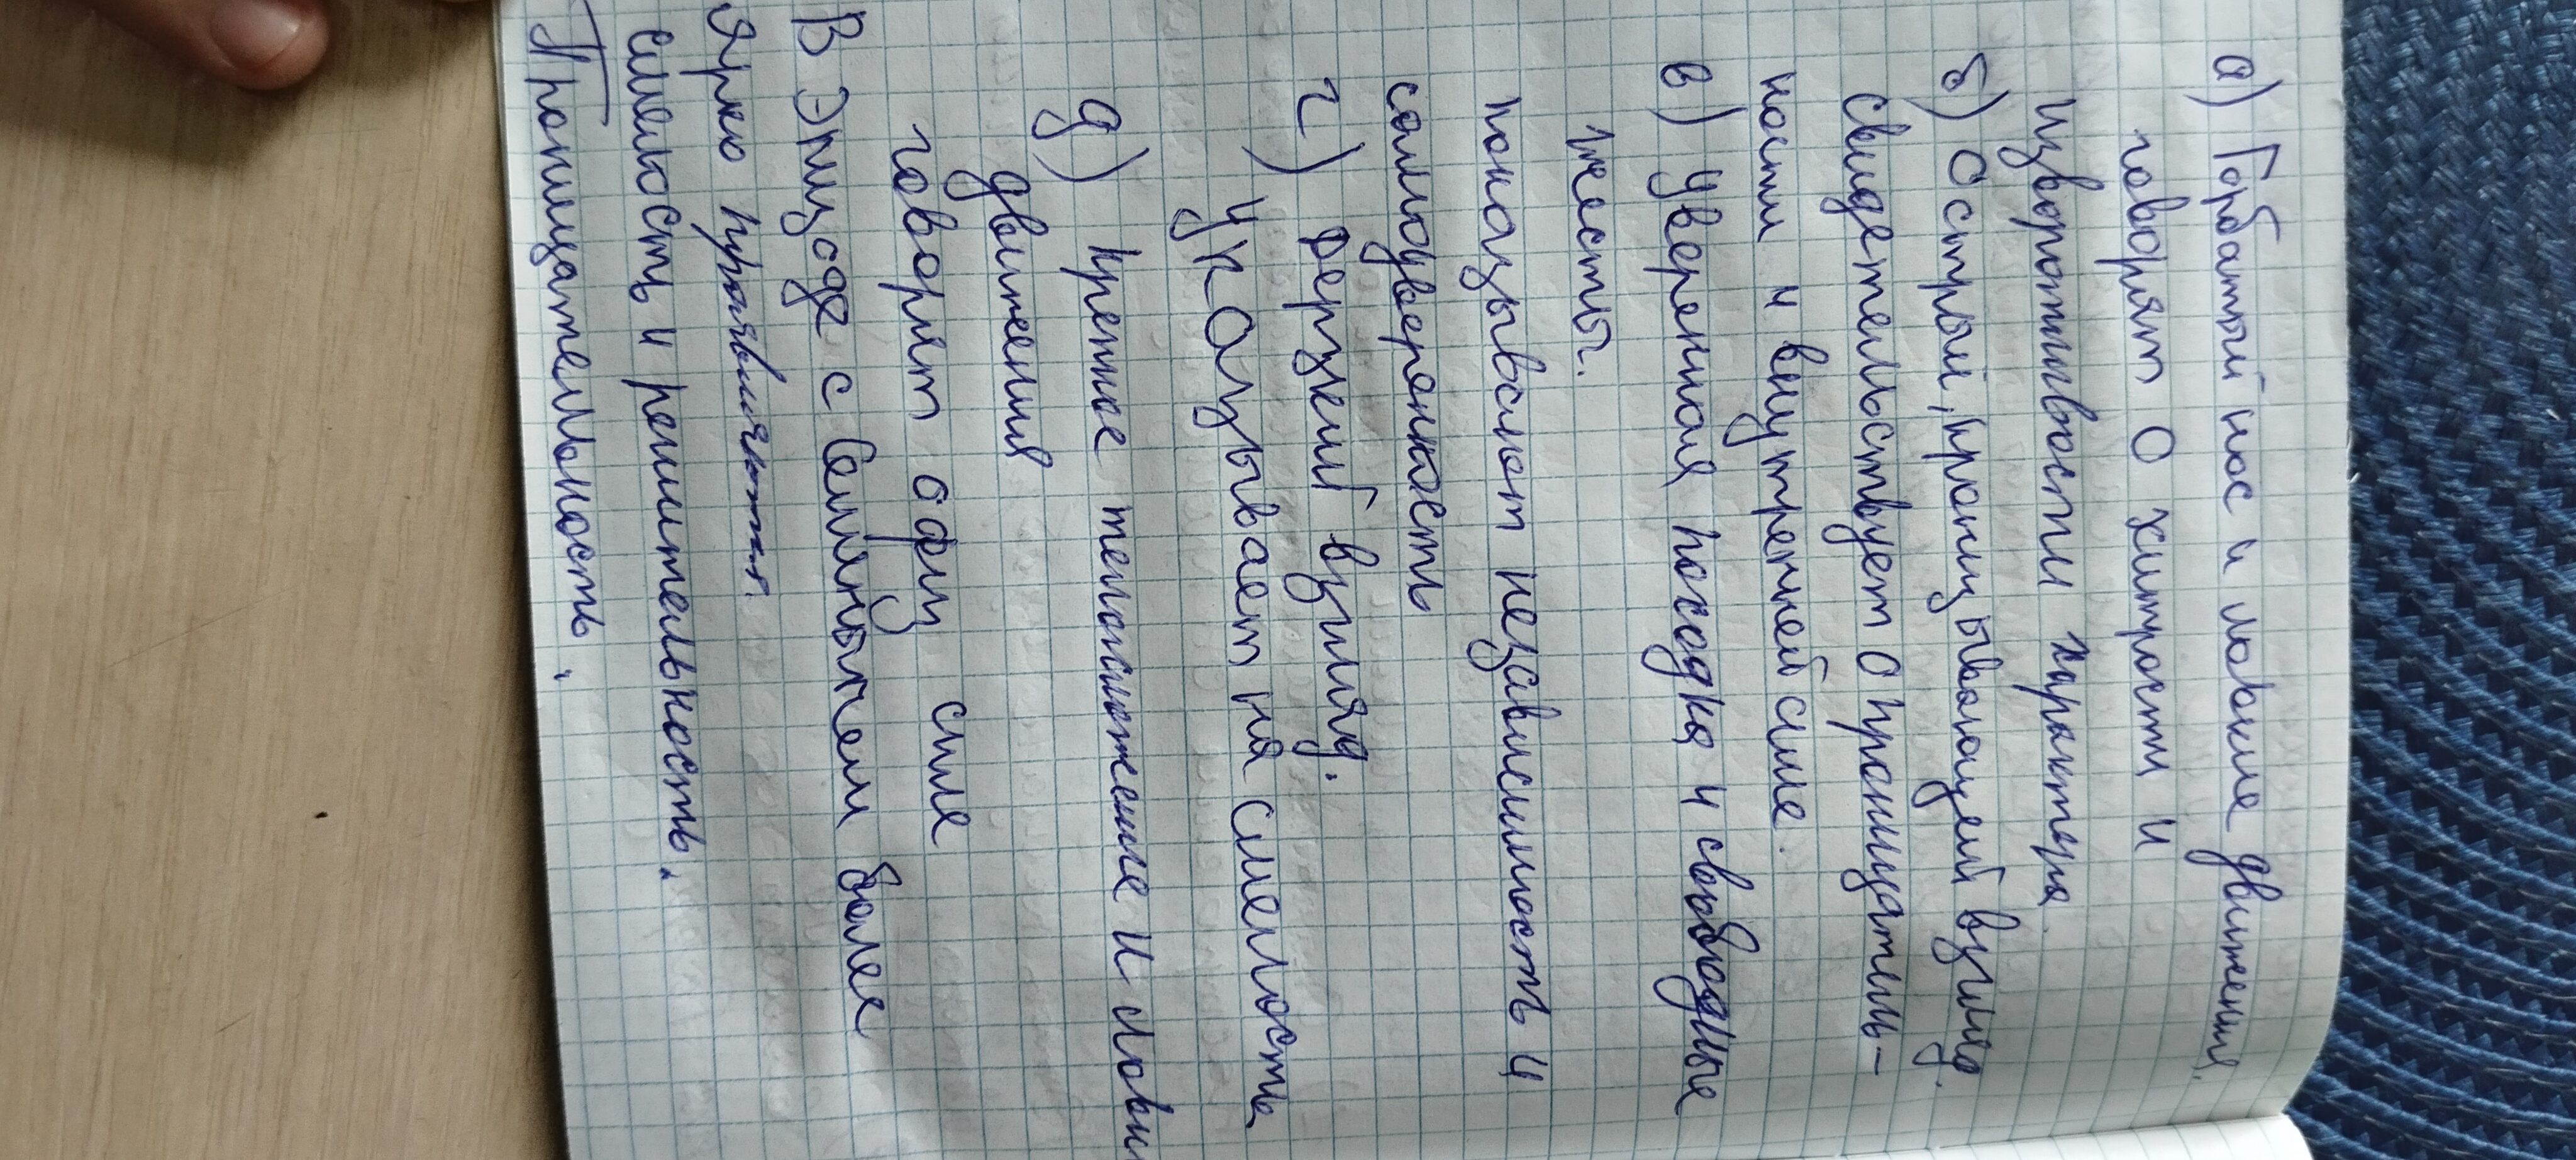 а) Горбатый нос и ловкие движения,
говорят о хитрости и
изворотливости характера
б) Острый, пронизывающий взгляд.
свидетельствует о проницатель-
ности и внутренней силе.
в) уверенная походка и свободные
жесты.
показывают независимость и
самоуверенность
г) Дерзкий взгляд.
указывает на смелость
д) крепкое телосложение и ловк
движения
говорят о физ силе
В эпизоде с Семёнычем более
ярко проявляются.
смелость и решительность.
Проницательность.